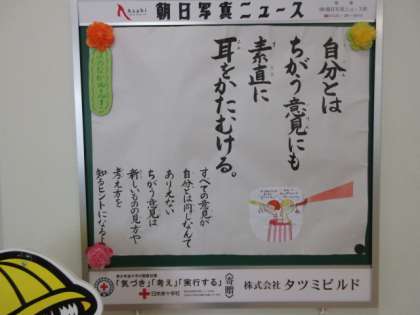 Asahi
朝日写真ニュース
自分とは
ちがう意見にも
素直に
耳をかたむける。
すべての意見が
自分とは同じなんて
ありえない
ちがう意見は
新しいものの見方や
考え方を
知るヒントになるよ
「気づき」「考え」「実行する」
日本赤十字社
寄贈
株式会社 タツミビルド